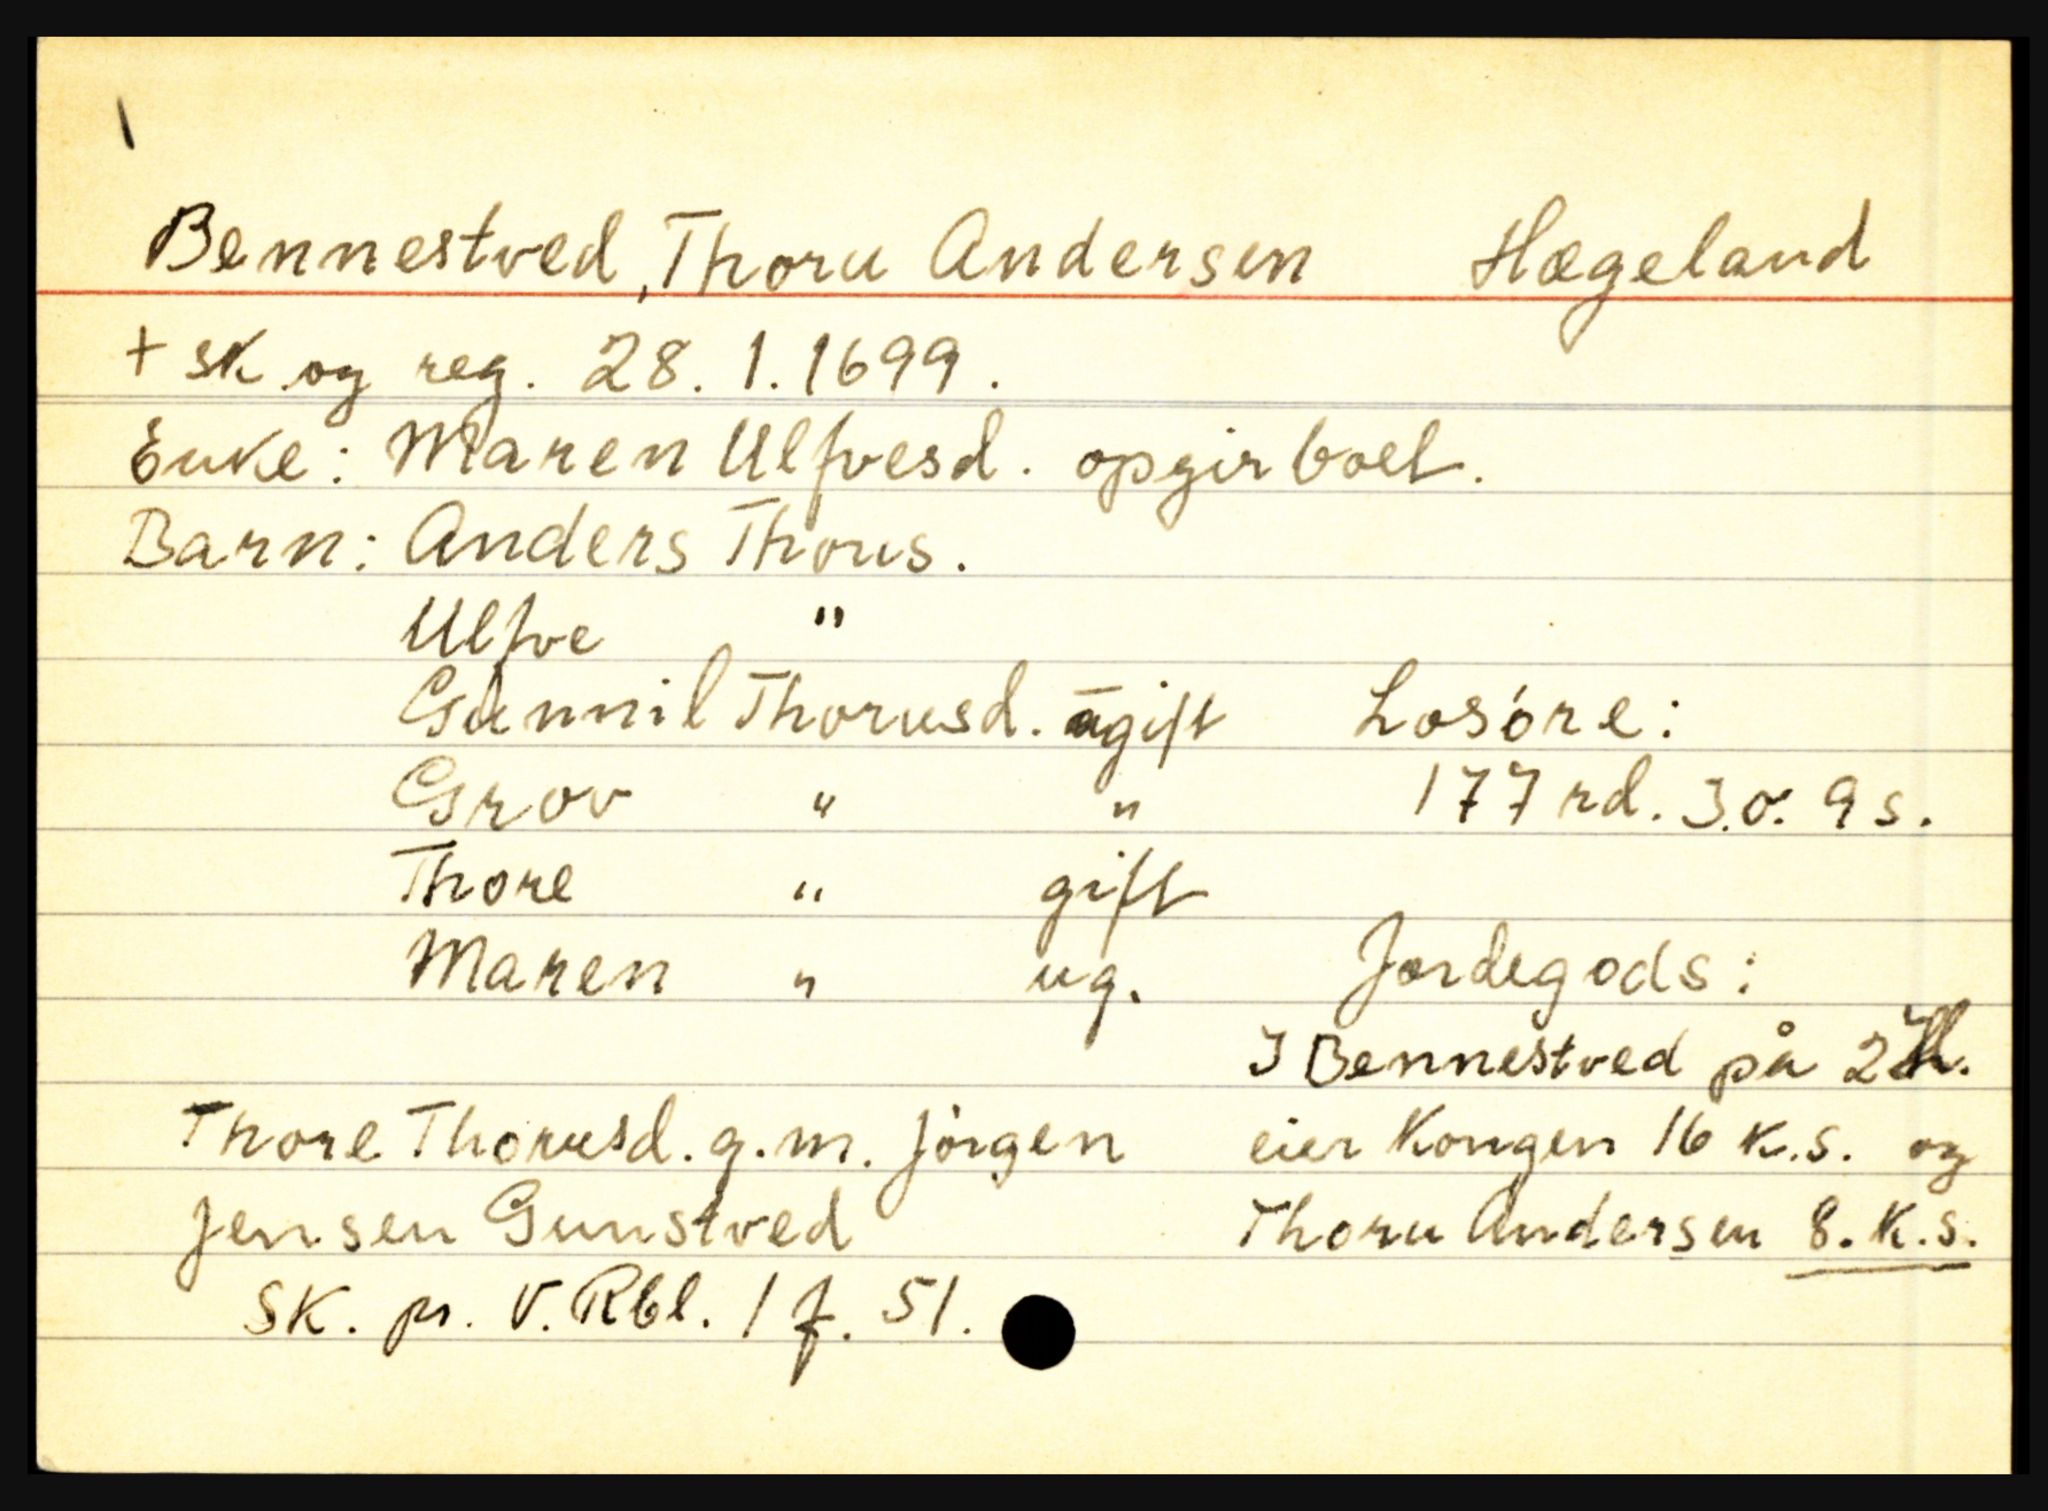 Bennestved, Thoru Andersen Hægeland
+ sk og reg. 28. 1. 1699.
Enke: Maren Ulfvesd. opgir boet.
Barn: Anders Thorus.
Ulfve "
Gunnil Thorusd. ugift
Grov " "
Thore " gift
Maren " ug.
Losöre:
177 rd. 3. o. 9 s.
Jordegods:
I Bennestved på 2 H.
eier Kongen 16 K.s. og
Thoru Andersen 8. K.s.
Thore Thorusd. g.m. Jörgen
Jensen Gunstved
SK. pr. V. Rbl. 1 f. 51.